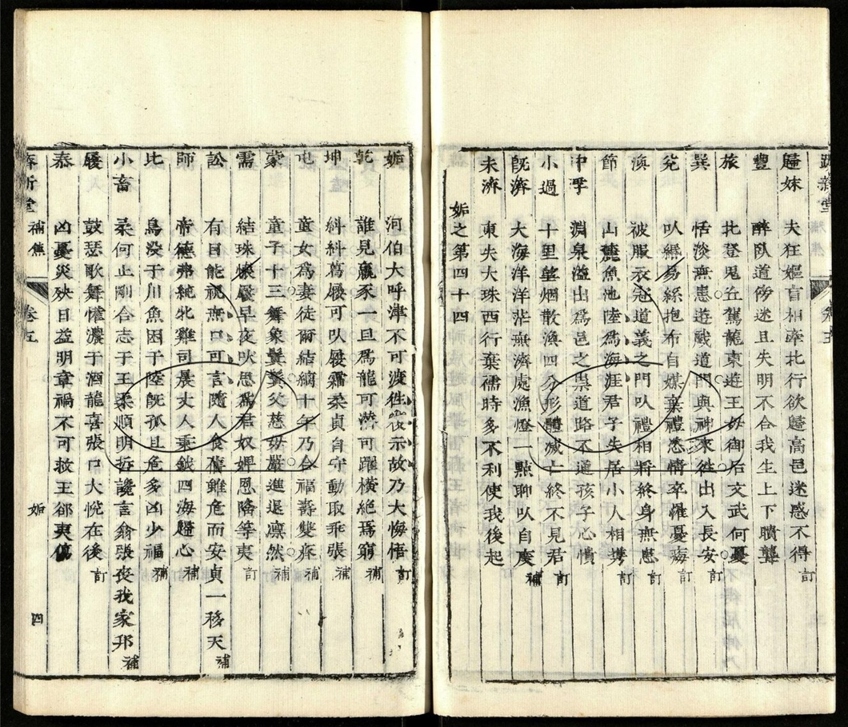 歸妹 夫狂嫗盲相牽北行欲歸高邑迷惑不得訂
豐 醉臥道傍迷且失明不合我生上下聵聾
旅 北登鬼丘駕龍東遊王母御后文武何憂
巽 恬淡無患遊戲道門與神來往出入長安訂
兌 以緡易絲抱布自媒棄禮急情卒罹憂悔訂
渙 被服衣冠道義之門以禮相將終身無愆
節 山麓魚池陸為海涯君子失居小人相攜訂
中孚 淵泉溢出為邑之祟道路不通孩子心憒
小過 十里望烟散渙四分形體滅亡終不見君訂
旣濟 大海洋洋茫無濟處漁燈一點聊以自度補
未濟 東失大珠西行棄襦時多不利使我後起
姤之第四十四
姤 河伯大呼津不可渡往復示故乃大悔悟訂
乾 誰見羸豕一旦為龍可潛可躍橫絕為窮補
坤 糾糾葛屨可以履霜柔貞自守動取乖張補
屯 童女為妻徒爾結縭十年乃合福壽雙齊補
蒙 童子十三舞象氋氃父慈母嚴進退凜然補
需 結珠 履早夜以思為君奴婢恩降等夷訂
訟 有目能視無口可言隨人食舊雖危而安貞一移天補
師 帝德弗純牝雞司晨丈人秉鉞四海歸心補
比 鳥沒于川魚困于陸旣孤且危多凶少福補
小畜 柔何止剛合志于王柔順明哲讒言翕張喪我家邦補
履 鼓瑟歌舞懽濃于酒龍喜張口大悅在後訂
泰 凶憂災殃日益明章禍不可救王郤夷傷
補焦 卷五 姤 四